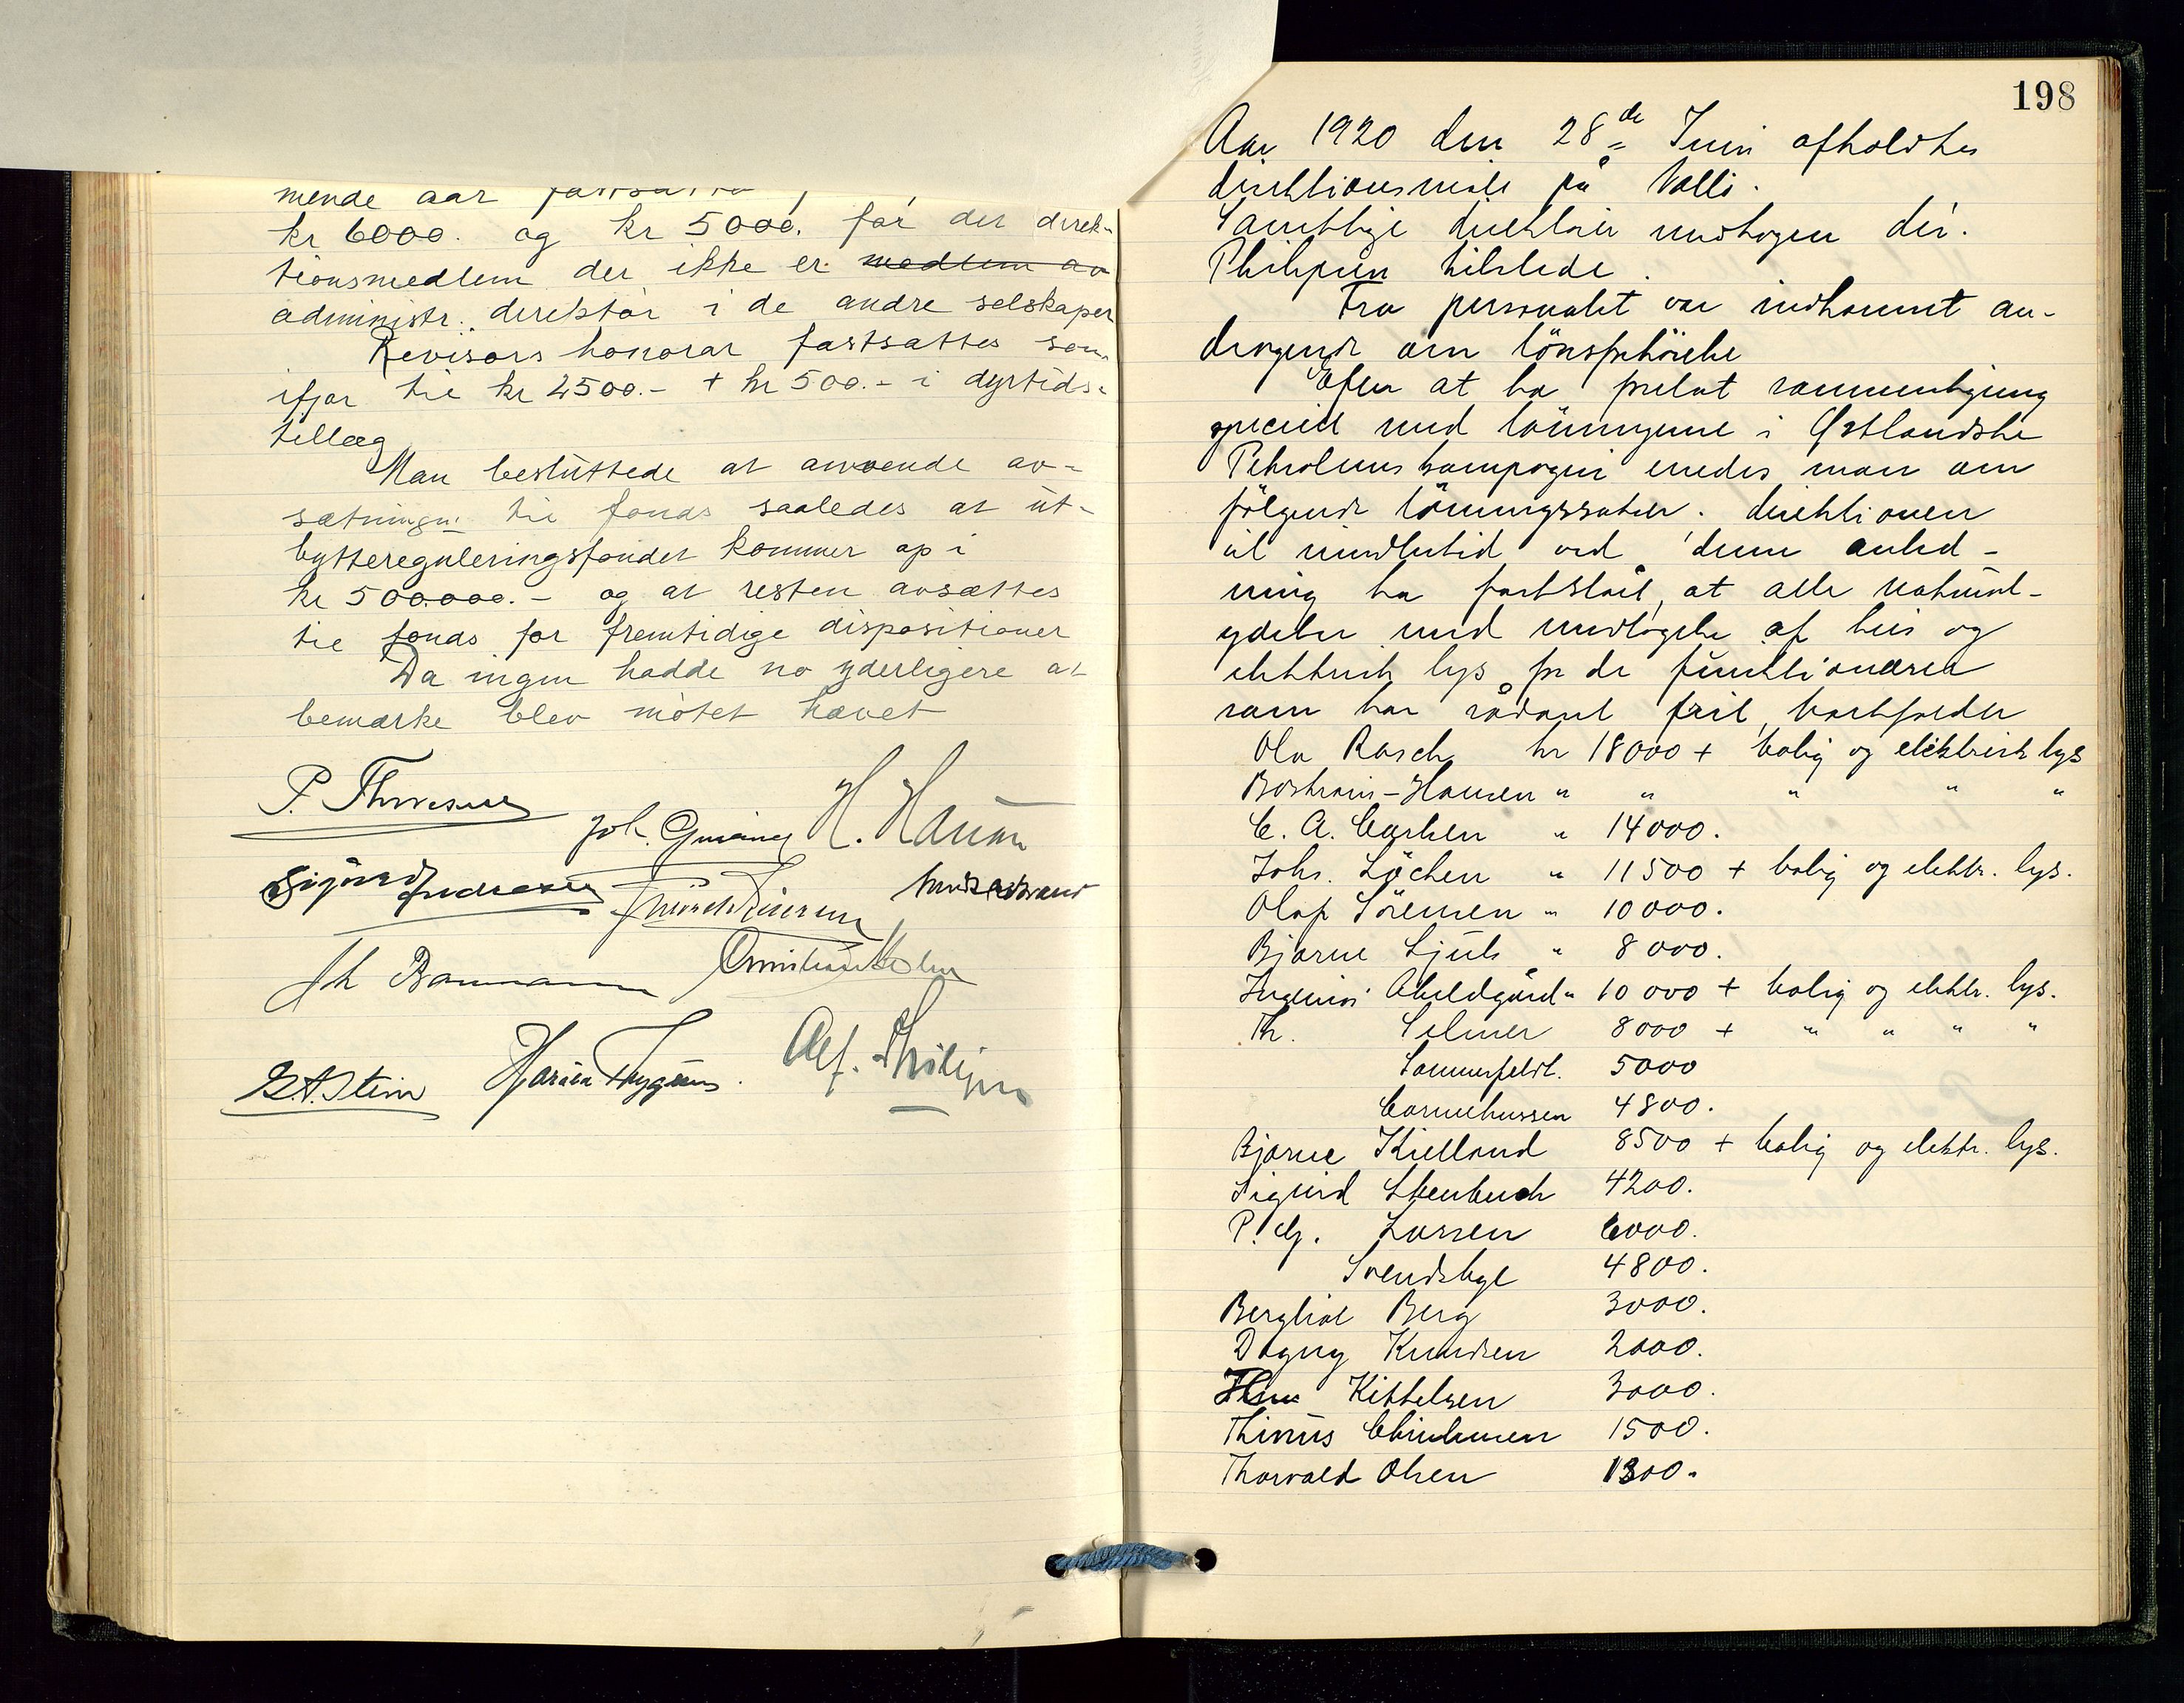 mende aar
kr 6000. og kr 5000. for det direk-
tionsmedlem der ikke er medlem av
administr. direktør i de andre selskaper
Revisors honorar fastsattes som
ifjor til kr 2500.- + kr 500.- i dyrtids-
tillæg
Man besluttede at anvende av-
sætningen til fonds saaledes at ut-
byttereguleringsfondet kommer op i
kr 500.000.- og at resten avsættes
til fonds for fremtidige dispositioner
Da ingen hadde no yderligere at
bemærke blev møtet hævet
H.
Sigurd
Th Baumann
E.A. Stein Alf. Philipsen
198
Aar 1920 den 28de Juni afholdtes
direktionsmöte på Valle.
Samtlige direktörer undtagen dir.
Philipsen tilstede.
Fra personalet var indkommet an-
dragende om lönsforhöielse
Efter at ha foretat sammenligning
specielt med lönningerne i Østlandske
Petroleumskompagni enedes man om
fölgende lönningssatser. Direktionen
vil imidlertid ved denne anled-
ning ha fastslåit, at alle natural-
ydelser med undtagelse af hus og
elektrisk lys for de funktionærer
som har sådant frit, bortfalder
Ola Rasch kr 18000 + bolig og elektrisk lys
Boström-Hansen " " " " "
C. A. Carlsen " 14000.
Johs. Löchen " 11500 + bolig og elektr. lys.
Olaf Sörensen " 10000.
Bjarne Ljuls " 8000.
Ingeniör Abeldgård " 10000 + bolig og elektr. lys.
Th. Selmer 8000 + " " " "
Sommerfeldt. 5000
Corneliussen 4800.
Bjarne Kielland 8500 + bolig og elektr. lys.
Sigurd Stenbuch 4200.
P. G. Larsen 6000.
Svendsbye 4800.
Bergliot Berg 3000.
Dagny Knudsen 2000.
Kittelsen 3000.
Thinius Christensen 1500.
Thorvald Olsen 1300.